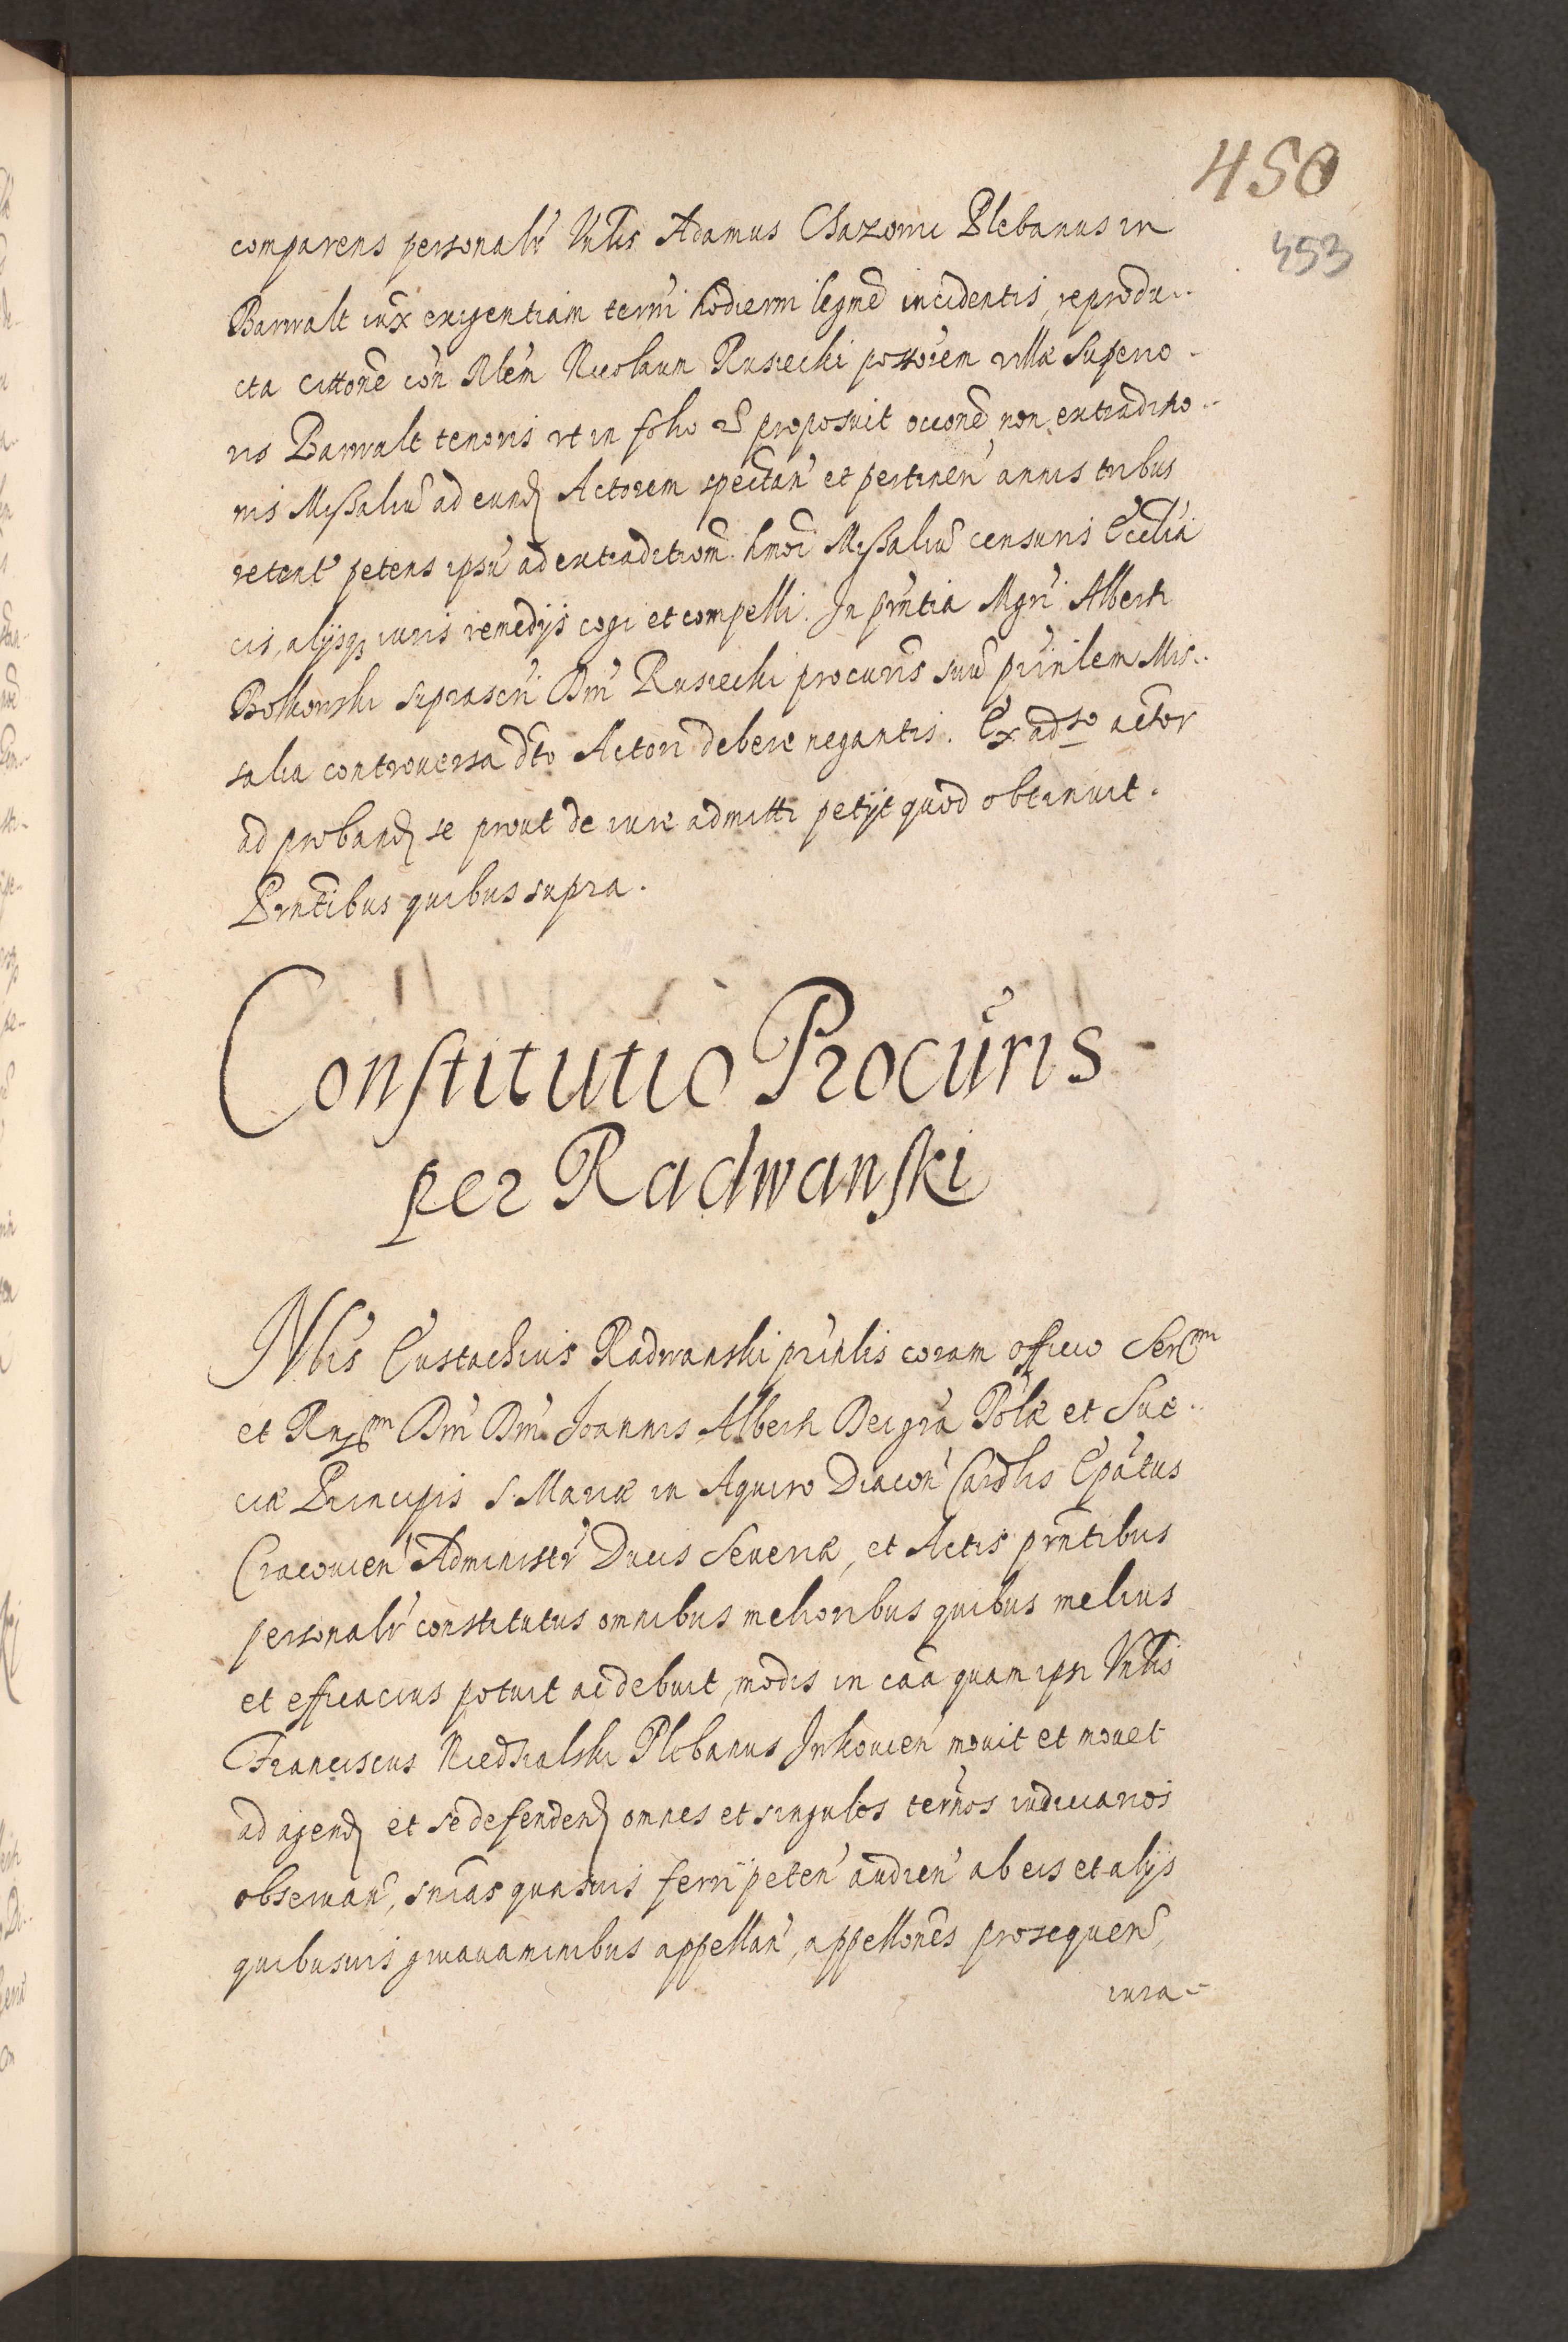 450
453
comparens personalr̃ Vnlis Adamus Chazowic Plebanus in
Barwalt iux̃ exigentiam termi hodierni legmẽ incidentis, reprodu-
cta cittonẽ con Nlẽm Nicolaum Rusiecki possorem villæ Superio-
ris Barwalt tenoris vt in folio & proposuit occonẽ non extraditio-
nis Missaliũ ad eund Actorem spectan̄ et pertinen̄ annis tribus
retent petens ipsũ ad extraditionẽ hmoi Missaliũ censuris Eccl̃ia
cis, alijsq iuris remedijs cogi et compelli. In prntia Mgri Alberti
Bolkowski suprascri Dni Rusiecki procuris suũ prinlem Mis-
salia controuersa dto Actori debere negantis. Ex adso actor
ad proband se prout de iure admitti petijt quod obtinuit.
Prntibus quibus supra.
Constitutio Procuris
per Radwanski
Nblis Eustachius Radwanski prinlis coram officio Sermi
et Rndmi Dni Dni Joannis Alberti Dei gra Polæ et Sue-
ciæ Principis S. Mariæ in Aquiro Diacon Cardlis Epatus
Cracouien Administr Ducis Seueriæ, et Actis prntibus
personalr constitutus omnibus melioribus quibus melius
et efficacius potuit ac debuit, modis in caa quam ipsi Vnlis
Franciscus Niedzialski Plebanus mouit et mouet
ad agend et se defendend omnes et singulos termos iudiciarios
obseruan, snias quasuis ferri peten audien ab eis et alijs
quibusuis grauaminibus appellan, appellones prosequen,
iura-